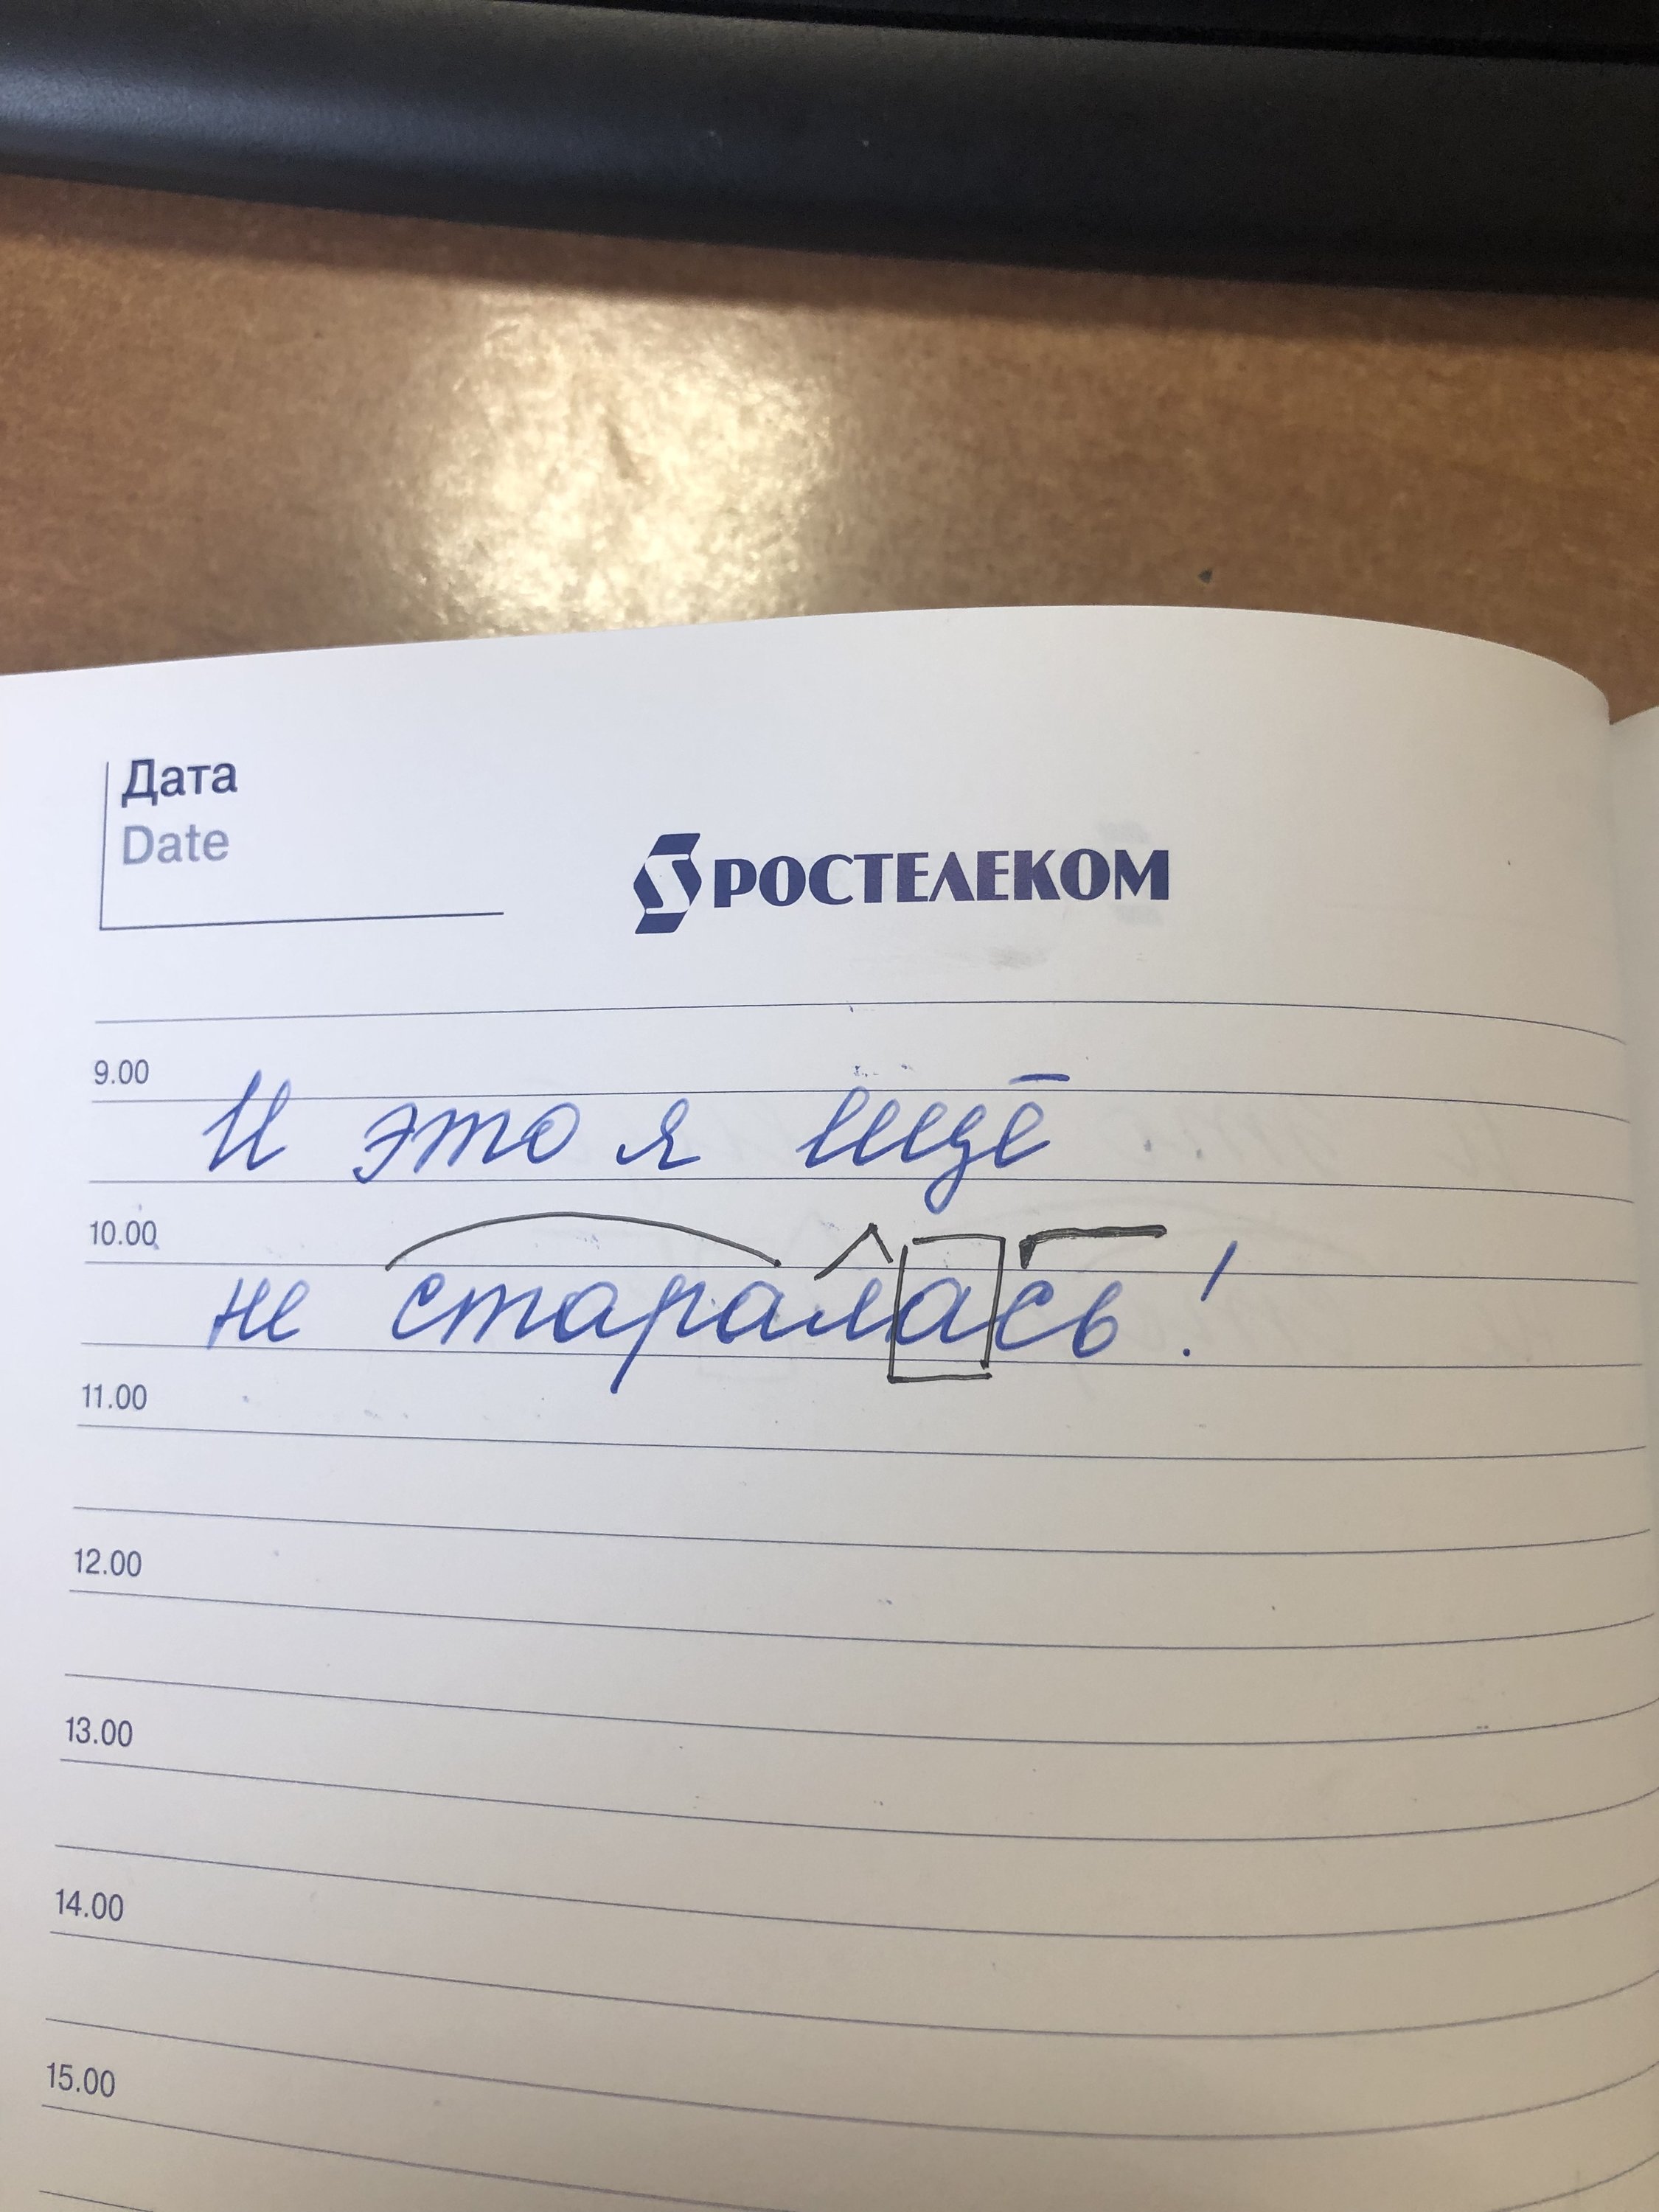 Дата
Date
РОСТЕЛЕКОМ
9.00
И это я ещё
10.00
не старалась!
11.00
12.00
13.00
14.00
15.00